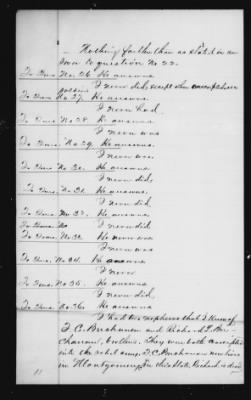 Nothing further than as stated in an
swer to question No 22.
To Ques. No. 26. He answers
I never did, except when
To Ques. No 27. He answers
I never had.
To Ques. No 28. He answers
I never was
To Ques. No 29. He answers
I never was
To Ques. No 30. He answers
I never did,
To Ques. No 31. He answers
I never did
To Ques. No 32. He answers
I never was
To Ques. No
To Ques. No 33 He answers
I never was
To Ques. No. 34. He answers
I never
To Ques. No 35. He answers
I never did
To Ques. No 36. He answers
I had two nephews that I knew of
T. C. Buchanan and Richard T. Bu-
chanan, brothers. They were both conscripted
into the rebel army. T. C. Buchanan now lives
in Montgomery, in this State, Richard is dead